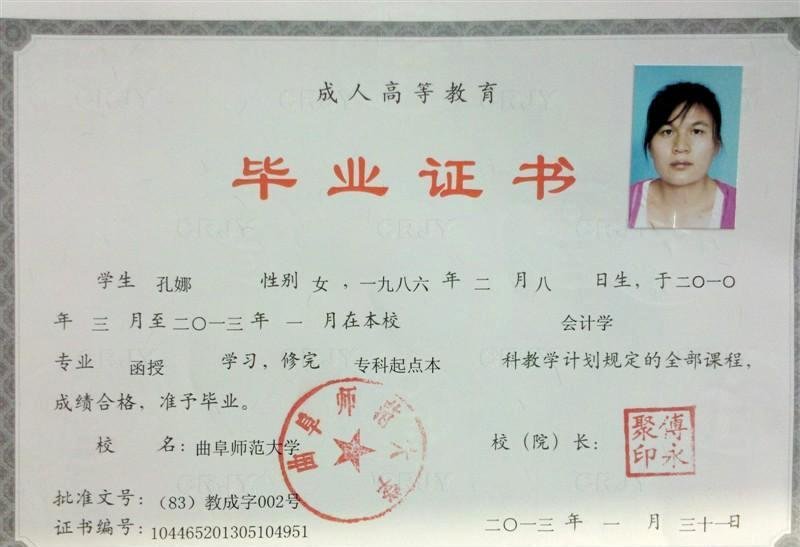 成人高等教育
毕业证书
学生 孔娜 性别 女，一九八六 年 二 月 八 日生，于二〇一〇
年 三 月至 二〇一三 年 一 月在本校 会计学
专业 函授 学习，修完 专科起点本 科教学计划规定的全部课程，
成绩合格，准予毕业。
校 名：曲阜师范大学
校（院）长：
傅永聚印
曲阜师范大学
批准文号：（83）教成字002号
证书编号：104465201305104951
二〇一三 年 一 月 三十一日
CRJY
CRJY
CRJY
CRJY